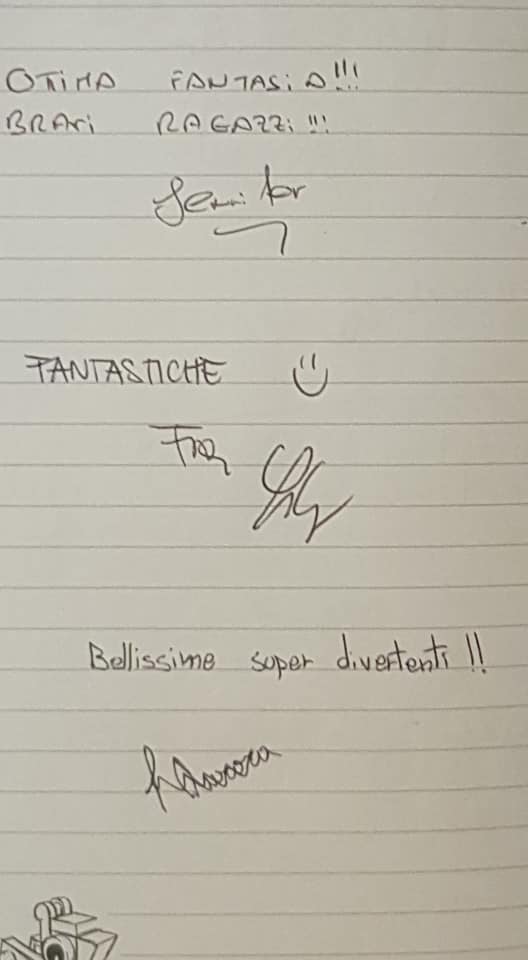 OTIMA FANTASiA!!!
BRAVi RAGAZZi !!!
FANTASTICHE
Fra
Bellissime super divertenti !!